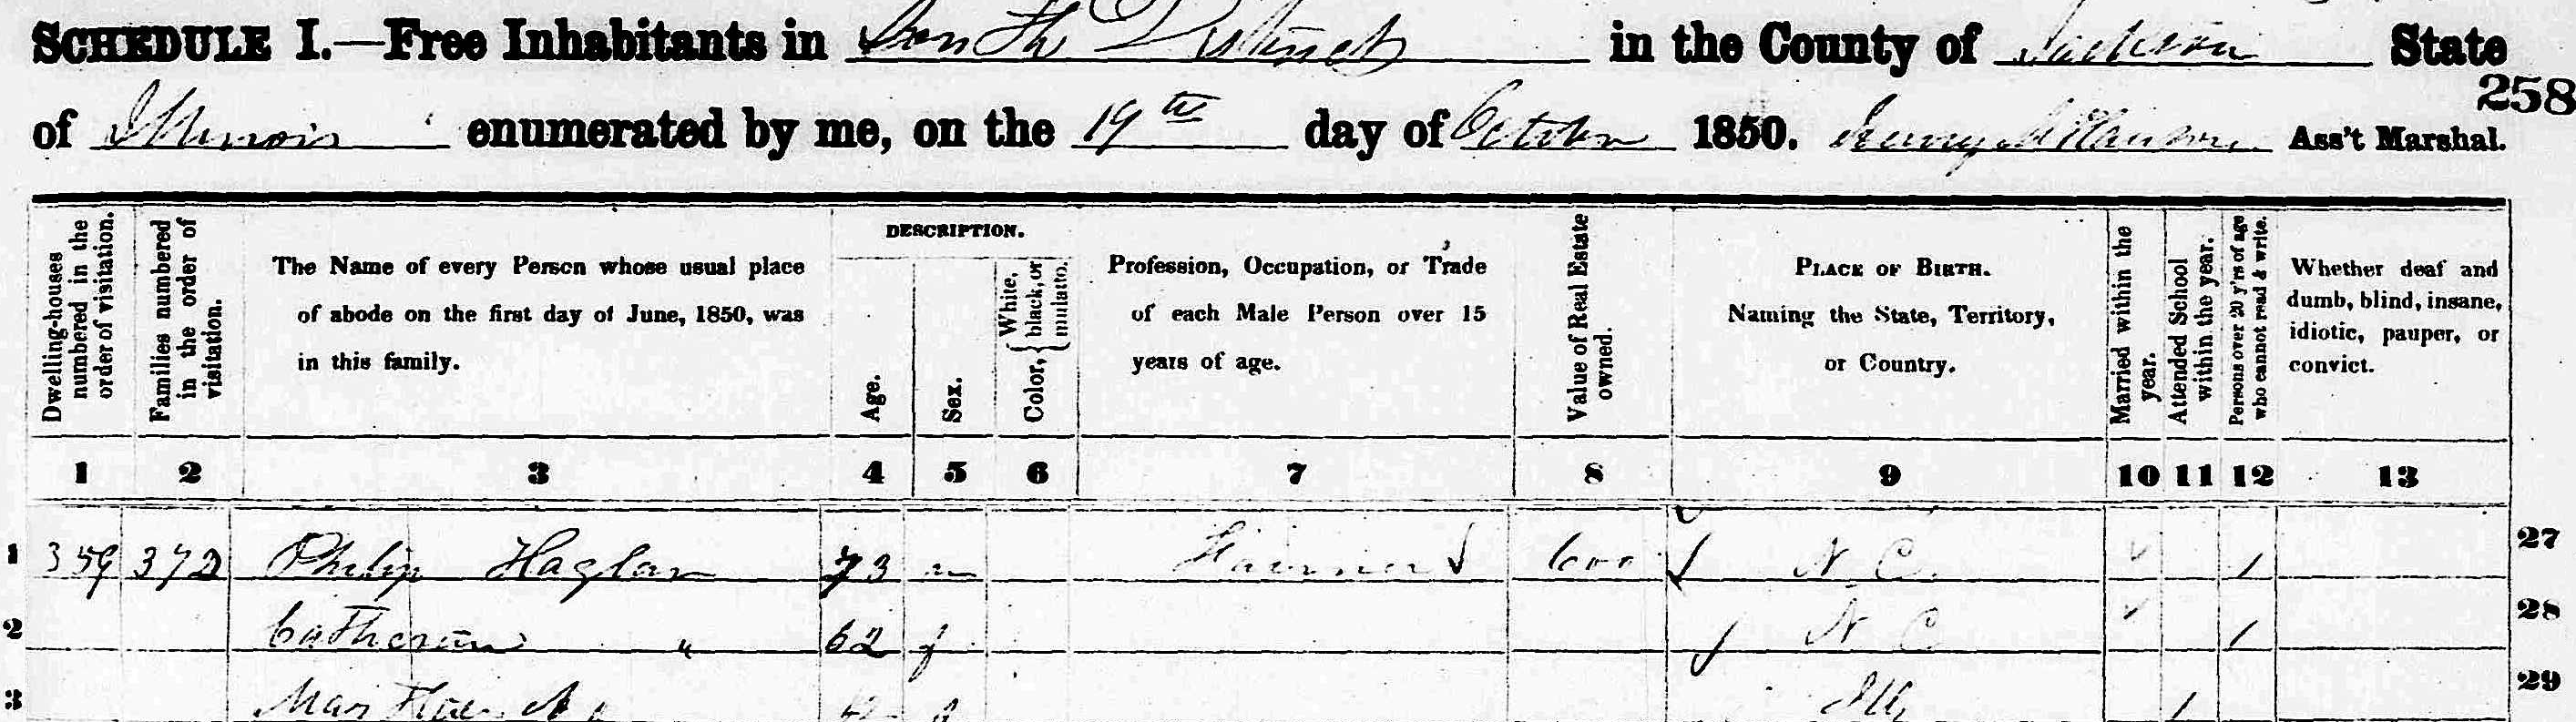 SCHEDULE I.—Free Inhabitants in South District in the County of Jackson State
258
of Illinois enumerated by me, on the 19th day of October 1850. Ass't Marshal.
Dwelling-houses numbered in the order of visitation.
Families numbered in the order of visitation.
The Name of every Person whose usual place
of abode on the first day of June, 1850, was
in this family.
DESCRIPTION.
Age.
Sex.
Color, { White, black, or mulatto.
Profession, Occupation, or Trade
of each Male Person over 15
years of age.
Value of Real Estate owned.
PLACE OF BIRTH.
Naming the State, Territory,
or Country.
Married within the year.
Attended School within the year.
Persons over 20 y'rs of age who cannot read & write.
Whether deaf and
dumb, blind, insane,
idiotic, pauper, or
convict.
1 2 3 4 5 6 7 8 9 10 11 12 13
1 359 372 Philip Haglar 73 m Farmer 600 N. C. 1 27
2 Catherine " 62 f N C 1 28
3 Ills 1 29